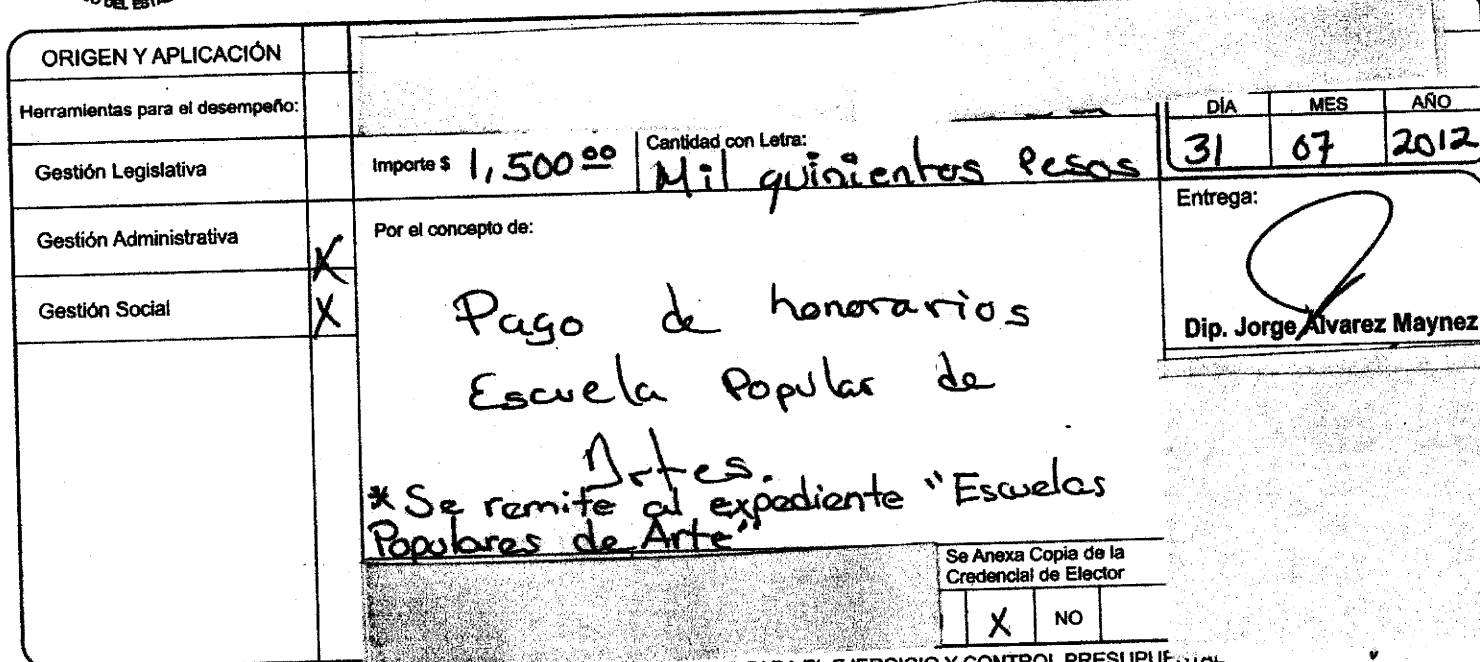 DEL ESTA
ORIGEN Y APLICACIÓN
Herramientas para el desempeño:
Gestión Legislativa
Gestión Administrativa X
Gestión Social X
Importe $ 1,500.00
Cantidad con Letra:
Mil quinientos Pesos
DÍA MES AÑO
31 07 2012
Por el concepto de:
Pago de honorarios
Escuela Popular de
Artes.
*Se remite al expediente "Escuelas
Populares de Arte"
Entrega:
Dip. Jorge Álvarez Maynez
Se Anexa Copia de la
Credencial de Elector
X NO
PARA EL EJERCICIO Y CONTROL PRESUPUESTAL